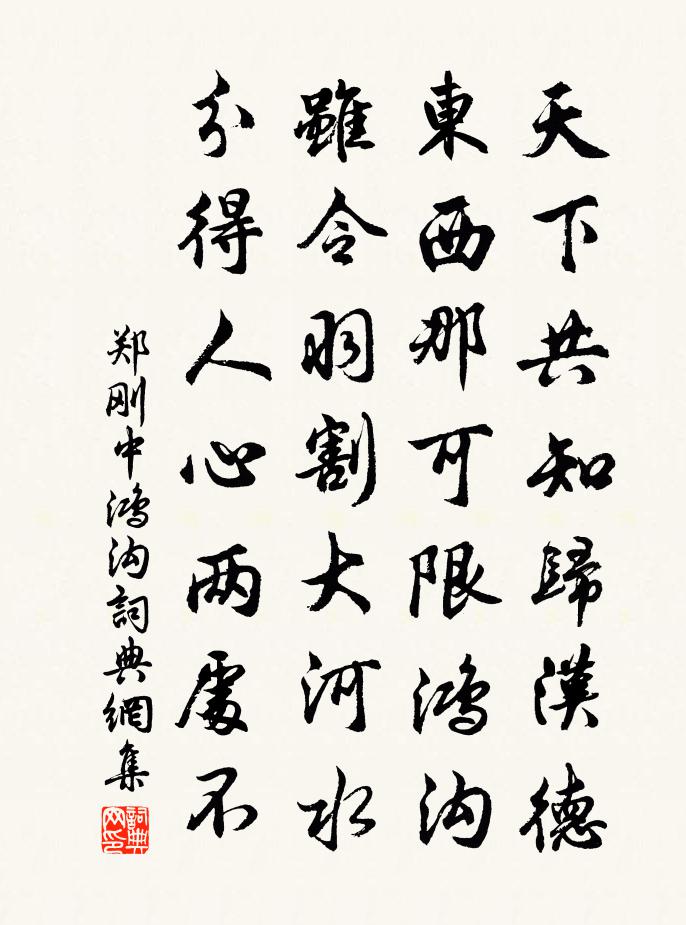 天下共知歸漢德
東西那可限鴻沟
雖令羽割大河水
分得人心两處不
郑刚中鴻沟詞典網集
詞典网印